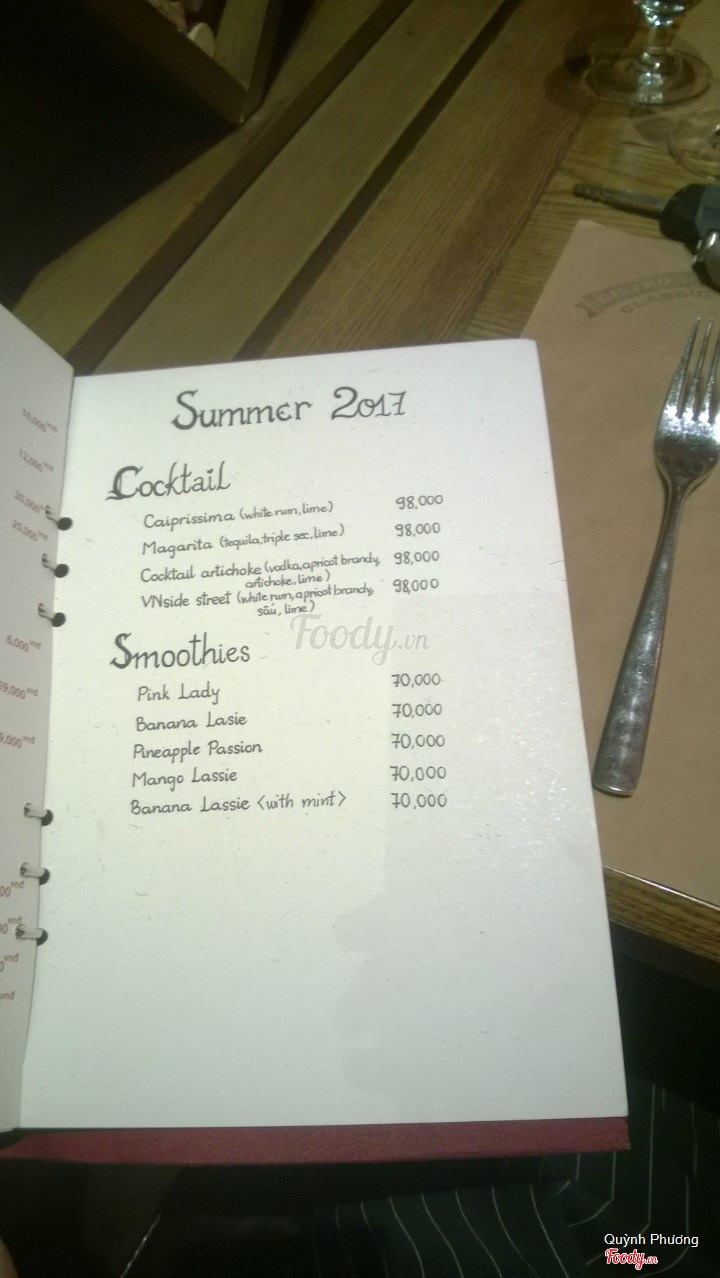 Summer 2017
Cocktail
Caiprissima (white rum, lime) 98,000
Magarita (tequila, triple sec, lime) 98,000
Cocktail artichoke (vodka, apricot brandy, 98,000
artichoke, lime)
VNside street (white rum, apricot brandy, 98,000
sấu, lime)
Smoothies
Pink Lady 70,000
Banana Lasie 70,000
Pineapple Passion 70,000
Mango Lassie 70,000
Banana Lassie <with mint> 70,000
10,000 vnd
12,000 vnd
20,000
25,000 vnd
6,000 vnd
9,000 vnd
vnd
vnd
vnd
vnd
CLASSIC
Foody.vn
Quỳnh Phương
Foody.vn